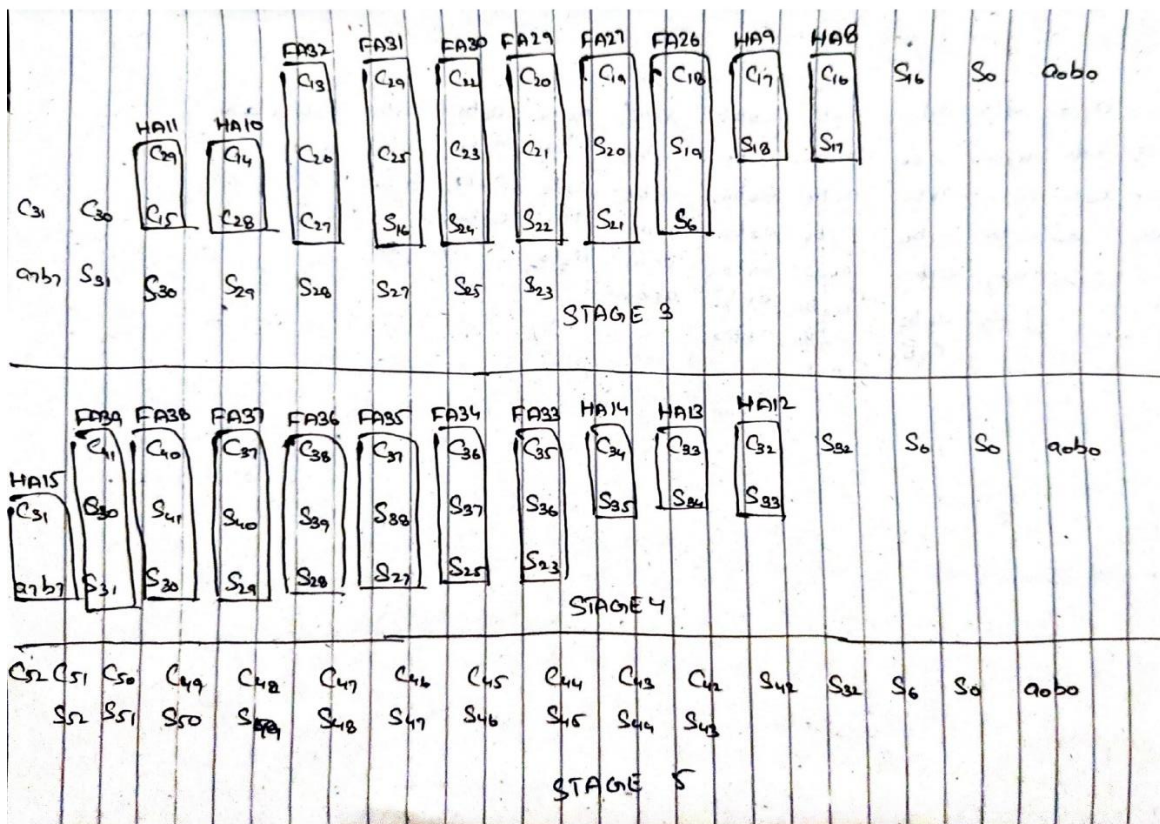 FA32 FA31 FA30 FA29 FA27 FA26 HA9 HA8
C13 C24 C22 C20 C19 C18 C17 C16 S16 S0 a0b0
HA11 HA10
C29 C14 C26 C25 C23 C21 S20 S19 S18 S17
C31 C30 C15 C28 C27 S16 S24 S22 S21 S6
a7b7 S31 S30 S29 S28 S27 S25 S23
STAGE 3
FA39 FA38 FA37 FA36 FA35 FA34 FA33 HA14 HA13 HA12
C41 C40 C37 C38 C37 C36 C35 C34 C33 C32 S32 S6 S0 a0b0
HA15
C31 S30 S41 S40 S39 S38 S37 S36 S35 S34 S33
a7b7 S31 S30 S29 S28 S27 S25 S23
STAGE 4
C52 C51 C50 C49 C48 C47 C46 C45 C44 C43 C42 S42 S32 S6 S0 a0b0
S52 S51 S50 S48 S47 S46 S45 S44 S43
STAGE 5